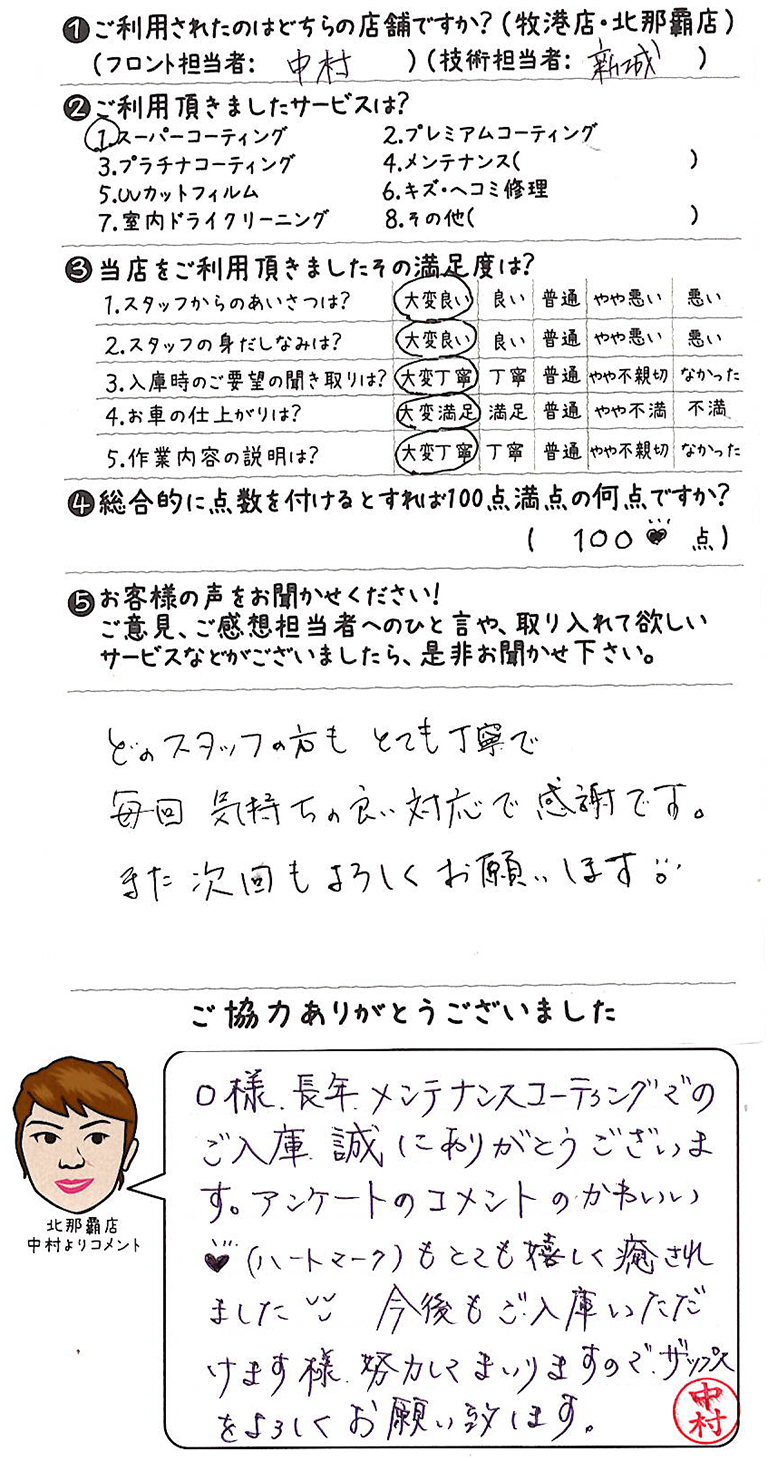 ❶ご利用されたのはどちらの店舗ですか?(牧港店・北那覇店)
(フロント担当者: 中村 )(技術担当者: 新城 )
❷ご利用頂きましたサービスは?
1.スーパーコーティング 2.プレミアムコーティング
3.プラチナコーティング 4.メンテナンス( )
5.UVカットフィルム 6.キズ・ヘコミ修理
7.室内ドライクリーニング 8.その他( )
❸当店をご利用頂きましたその満足度は?
1.スタッフからのあいさつは? 大変良い 良い 普通 やや悪い 悪い
2.スタッフの身だしなみは? 大変良い 良い 普通 やや悪い 悪い
3.入庫時のご要望の聞き取りは? 大変丁寧 丁寧 普通 やや不親切 なかった
4.お車の仕上がりは? 大変満足 満足 普通 やや不満 不満
5.作業内容の説明は? 大変丁寧 丁寧 普通 やや不親切 なかった
❹総合的に点数を付けるとすれば100点満点の何点ですか?
( 100♥ 点)
❺お客様の声をお聞かせください!
ご意見、ご感想担当者へのひと言や、取り入れて欲しい
サービスなどがございましたら、是非お聞かせ下さい。
どのスタッフの方も とても丁寧で
毎回 気持ちの良い対応で感謝です。
また次回もよろしくお願いします
ご協力ありがとうございました
O様、長年、メンテナンスコーティングでの
ご入庫、誠にありがとうございま
す。アンケートのコメントのかわいい
♥(ハートマーク)もとても嬉しく癒され
ました 今後もご入庫いただ
けます様、努力してまいりますので、ザップス
をよろしくお願い致します。
中村
北那覇店
中村よりコメント